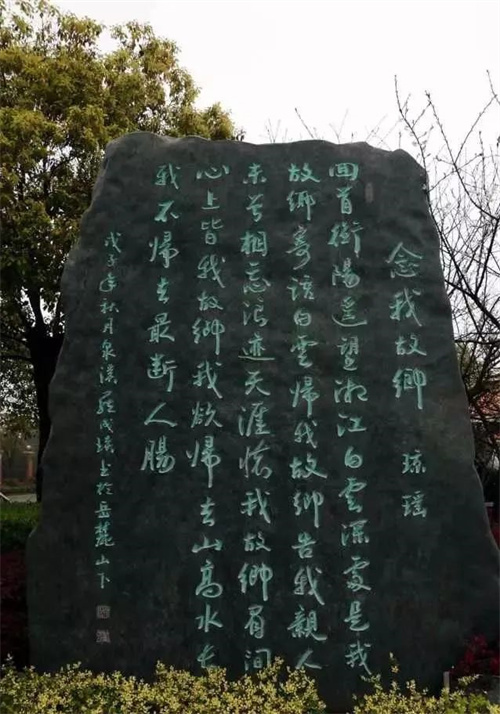 念我故鄉 琼瑶
回首衡陽遥望湘江白雲深處是我
故鄉寄语白雲歸我故鄉告我親人
未曾相忘浪迹天涯憶我故鄉眉间
心上皆我故鄉我欲歸去山高水长
我不歸去最断人腸
戊子年秋月泉溪羅成书於岳麓山下